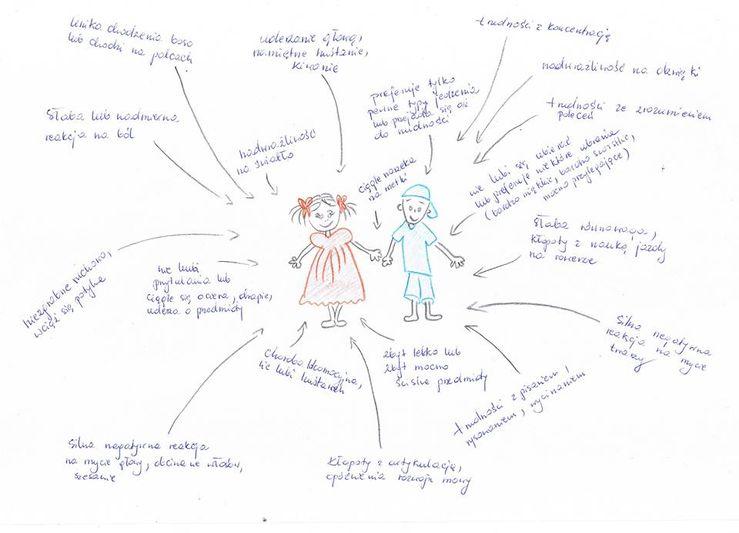 unika chodzenia boso
lub chodzi na palcach
uderzanie głową,
namiętne huśtanie,
kiwanie
trudności z koncentracją
nadwrażliwość na dźwięki
preferuje tylko
pewne typy jedzenia
lub przejada się aż
do mdłości
trudności ze zrozumieniem
poleceń
słaba lub nadmierna
reakcja na ból
nadwrażliwość
na światło
ciągle narzeka
na metki
nie lubi się ubierać
lub preferuje niektóre ubrania
(bardzo miękkie, bardzo szerokie,
mocno przylegające)
słaba równowaga,
kłopoty z nauką jazdy
na rowerze
niezgrabne ruchowo,
wciąż się potyka
nie lubi
przytulania lub
ciągle się ociera, drapie,
uderza o przedmioty
silna negatywna
reakcja na mycie
twarzy
choroba lokomocyjna,
nie lubi huśtawek
zbyt lekko lub
zbyt mocno
ściska przedmioty
trudności z pisaniem,
rysowaniem, wycinaniem
silna negatywna reakcja
na mycie głowy, obcinanie włosów,
czesanie
kłopoty z artykulacją,
opóźnienia rozwoju mowy